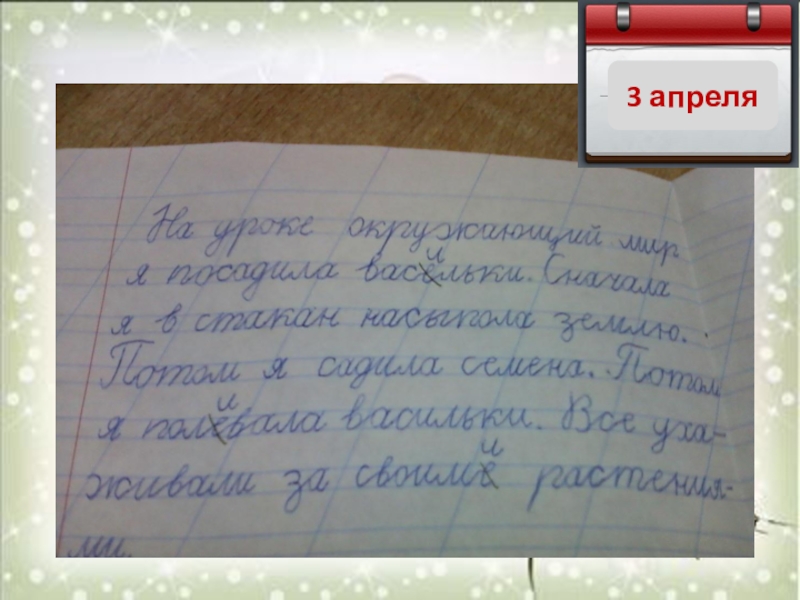 3 апреля
На уроке окружающий мир
я посадила васильки. Сначала
я в стакан насыпола землю.
Потом я садила семена. Потом
я поливала васильки. Все уха-
живали за своими растения-
ми.